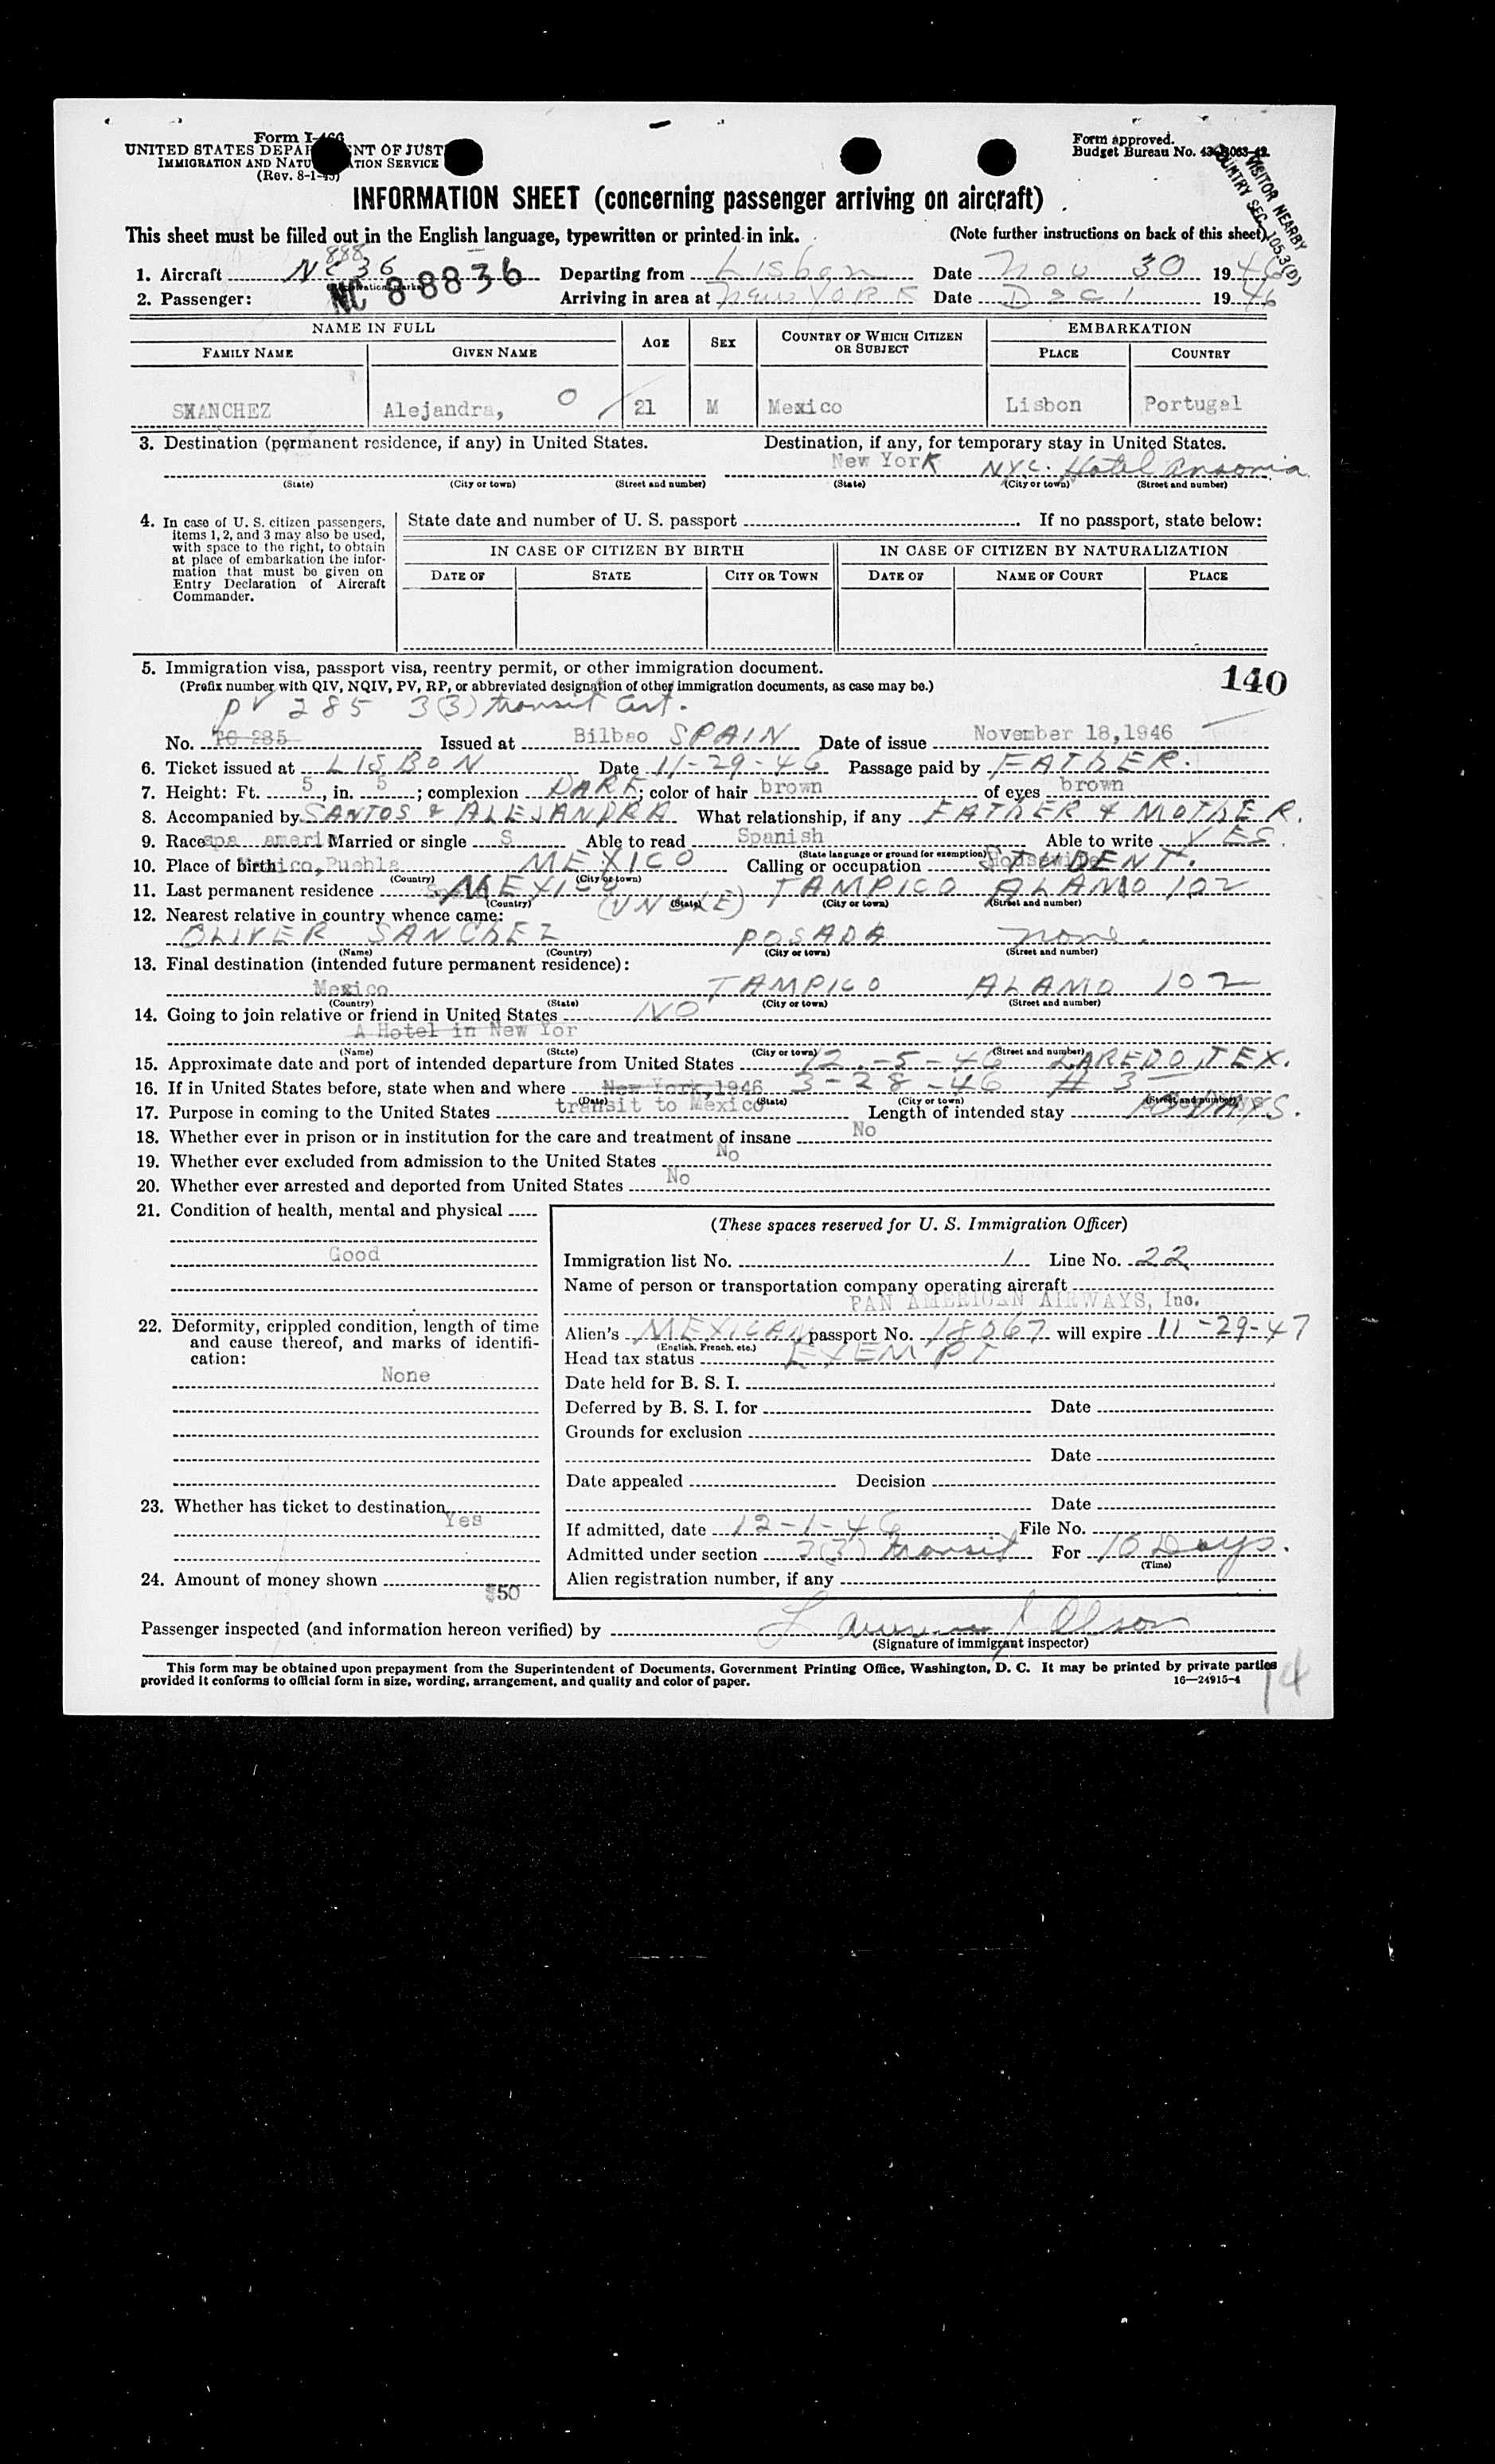 Form I-466
UNITED STATES DEPARTMENT OF JUSTICE
IMMIGRATION AND NATURALIZATION SERVICE
(Rev. 8-1-45)
Form approved.
Budget Bureau No. 43-R063-42.
VISITOR NEARBY
COUNTRY SEC. 105.3(D)
INFORMATION SHEET (concerning passenger arriving on aircraft)
This sheet must be filled out in the English language, typewritten or printed in ink. (Note further instructions on back of this sheet)
888
1. Aircraft NC 36 NC 88836 Departing from Lisbon Date Nov 30 1946
2. Passenger: Arriving in area at New YORK Date Dec 1 1946
NAME IN FULL AGE SEX COUNTRY OF WHICH CITIZEN OR SUBJECT EMBARKATION
FAMILY NAME GIVEN NAME PLACE COUNTRY
SANCHEZ Alejandra, O 21 M Mexico Lisbon Portugal
3. Destination (permanent residence, if any) in United States. Destination, if any, for temporary stay in United States.
New York NYC. Hotel Ansonia
(State) (City or town) (Street and number) (State) (City or town) (Street and number)
4. In case of U. S. citizen passengers, items 1, 2, and 3 may also be used, with space to the right, to obtain at place of embarkation the information that must be given on Entry Declaration of Aircraft Commander.
State date and number of U. S. passport If no passport, state below:
IN CASE OF CITIZEN BY BIRTH IN CASE OF CITIZEN BY NATURALIZATION
DATE OF STATE CITY OR TOWN DATE OF NAME OF COURT PLACE
5. Immigration visa, passport visa, reentry permit, or other immigration document.
(Prefix number with QIV, NQIV, PV, RP, or abbreviated designation of other immigration documents, as case may be.)
140
PV 285 3(3) transit Cert.
No. TC 285 Issued at Bilbao SPAIN Date of issue November 18,1946
6. Ticket issued at LISBON Date 11-29-46 Passage paid by FATHER.
7. Height: Ft. 5, in. 5; complexion DARK; color of hair brown of eyes brown
8. Accompanied by SANTOS & ALEJANDRA What relationship, if any FATHER & MOTHER.
9. Race spa ameri Married or single S Able to read Spanish Able to write YES.
(State language or ground for exemption)
10. Place of birth Mexico,Puebla MEXICO Calling or occupation Housewife STUDENT.
(Country) (City or town)
11. Last permanent residence MEXICO TAMPICO ALAMO 102
(Country) (State) (City or town) (Street and number)
12. Nearest relative in country whence came: (UNCLE)
OLIVER SANCHEZ POSADA none.
(Name) (Country) (City or town) (Street and number)
13. Final destination (intended future permanent residence):
Mexico TAMPICO ALAMO 102
(Country) (State) (City or town) (Street and number)
14. Going to join relative or friend in United States NO
A Hotel in New Yor
(Name) (State) (City or town) (Street and number)
15. Approximate date and port of intended departure from United States 12-5-46 LAREDO, TEX.
16. If in United States before, state when and where New York,1946 3-28-46 # 3
(Date) (State) (City or town) (Street and number)
17. Purpose in coming to the United States transit to Mexico Length of intended stay 10 DAYS.
18. Whether ever in prison or in institution for the care and treatment of insane No
19. Whether ever excluded from admission to the United States No
20. Whether ever arrested and deported from United States No
21. Condition of health, mental and physical
Good
22. Deformity, crippled condition, length of time and cause thereof, and marks of identification:
None
23. Whether has ticket to destination
Yes
24. Amount of money shown
$50
(These spaces reserved for U. S. Immigration Officer)
Immigration list No. 1 Line No. 22
Name of person or transportation company operating aircraft
PAN AMERICAN AIRWAYS, Inc.
Alien's MEXICAN passport No. 18067 will expire 11-29-47
(English, French, etc.)
Head tax status EXEMPT
Date held for B. S. I.
Deferred by B. S. I. for Date
Grounds for exclusion
Date
Date appealed Decision
Date
If admitted, date 12-1-46 File No.
Admitted under section 3(3) transit For 10 Days.
(Time)
Alien registration number, if any
Passenger inspected (and information hereon verified) by Olson
(Signature of immigrant inspector)
This form may be obtained upon prepayment from the Superintendent of Documents, Government Printing Office, Washington, D. C. It may be printed by private parties
provided it conforms to official form in size, wording, arrangement, and quality and color of paper. 16—24915-4
14